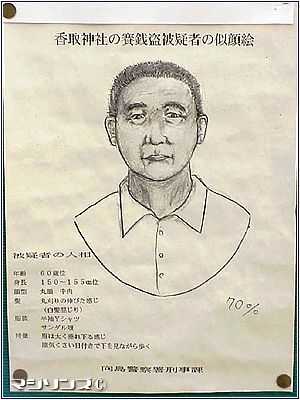 香取神社の賽銭盗被疑者の似顔絵
被疑者の人相
年齢 60歳位
身長 150～155㎝位
顔型 丸顔 牛肉
髪 丸刈りの伸びた感じ
(白髪混じり)
服装 半袖Yシャツ
サンダル履
特徴 眉は太く垂れ下る感じ
陰気くさい目付きで下を見ながら歩く
70%
向島警察署刑事課
マシリンズ©